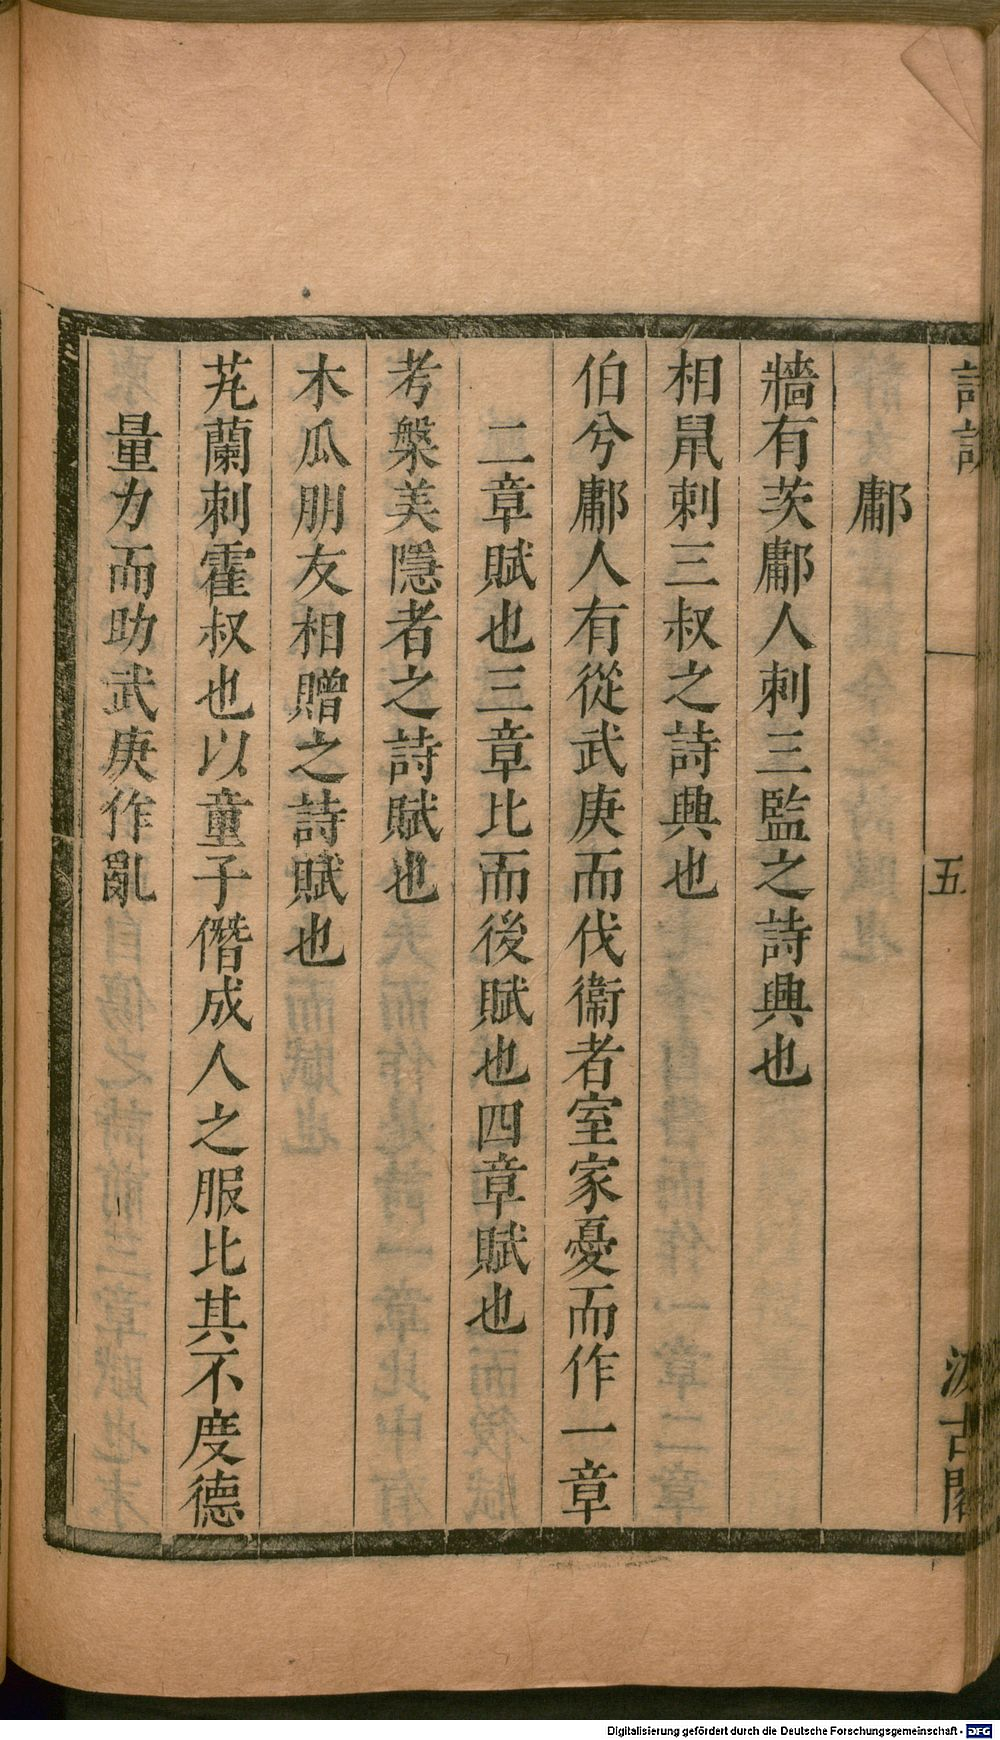 鄘
牆有茨鄘人刺三監之詩興也
相鼠刺三叔之詩興也
伯兮鄘人有從武庚而伐衞者室家憂而作一章
二章賦也三章比而後賦也四章賦也
考槃美隱者之詩賦也
木瓜朋友相贈之詩賦也
芄蘭刺霍叔也以童子僭成人之服比其不度德
量力而助武庚作亂
五
古閣
Digitalisierung gefördert durch die Deutsche Forschungsgemeinschaft - DFG